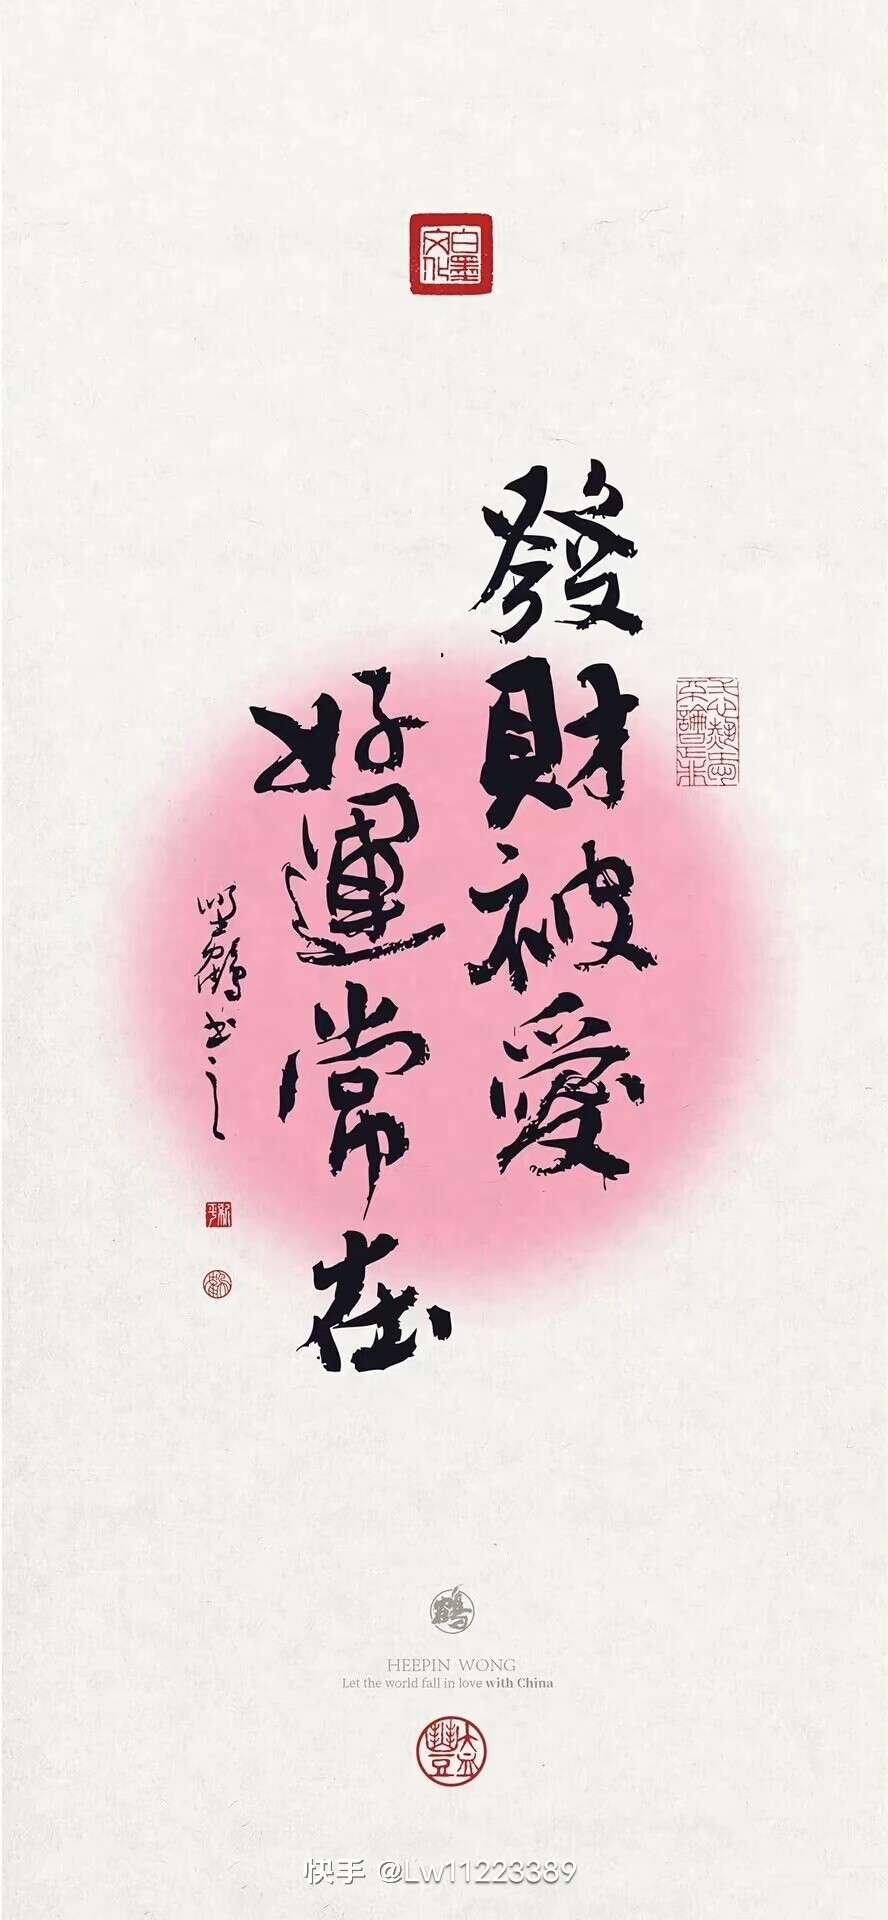 白墨文化
發財被愛
好運常在
鶴書之
HEEPIN WONG
Let the world fall in love with China
快手 @Lw11223389